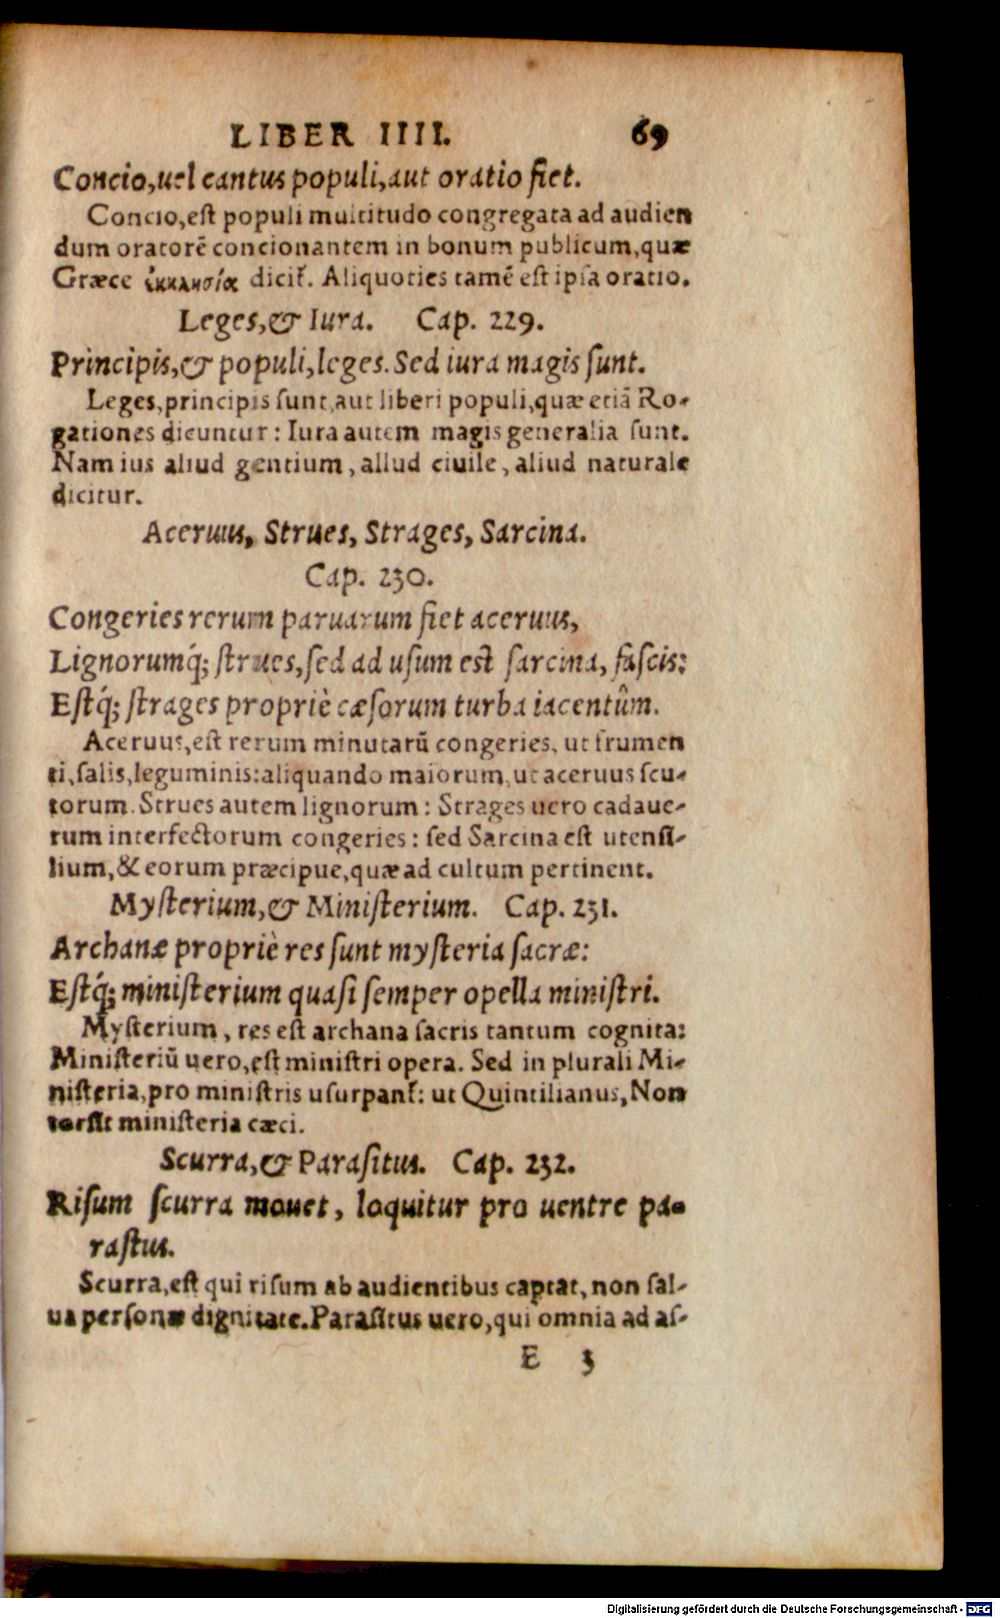 LIBER IIII. 69
Concio, uel cantus populi, aut oratio fiet.
Concio, eſt populi multitudo congregata ad audien
dum oratorē concionantem in bonum publicum, quæ
Græce ἐκκλησία dicit᷑. Aliquoties tamē eſt ipſa oratio.
Leges, & Iura. Cap. 229.
Principis, & populi, leges. Sed iura magis ſunt.
Leges, principis ſunt, aut liberi populi, quæ etiā Ro-
gationes dicuntur: Iura autem magis generalia ſunt.
Nam ius aliud gentium, aliud ciuile, aliud naturale
dicitur.
Aceruus, Strues, Strages, Sarcina.
Cap. 230.
Congeries rerum paruarum fiet aceruus,
Lignorumq́; ſtrues, ſed ad uſum eſt ſarcina, faſcis:
Eſtq́; ſtrages propriè cæſorum turba iacentûm.
Aceruus, eſt rerum minutarū congeries, ut frumen
ti, ſalis, leguminis: aliquando maiorum, ut aceruus ſcu-
torum. Strues autem lignorum: Strages uero cadaue-
rum interfectorum congeries: ſed Sarcina eſt utenſi-
lium, & eorum præcipue, quæ ad cultum pertinent.
Myſterium, & Miniſterium. Cap. 231.
Archanæ propriè res ſunt myſteria ſacræ:
Eſtq́; miniſterium quaſi ſemper opella miniſtri.
Myſterium, res eſt archana ſacris tantum cognita:
Miniſteriū uero, eſt miniſtri opera. Sed in plurali Mi-
niſteria, pro miniſtris uſurpant᷑: ut Quintilianus, Non
torſit miniſteria cæci.
Scurra, & Paraſitus. Cap. 232.
Riſum ſcurra mouet, loquitur pro uentre pa-
raſtus.
Scurra, eſt qui riſum ab audientibus captat, non ſal-
ua perſonæ dignitate. Paraſitus uero, qui omnia ad aſ-
E 3
Digitalisierung gefördert durch die Deutsche Forschungsgemeinschaft - DFG